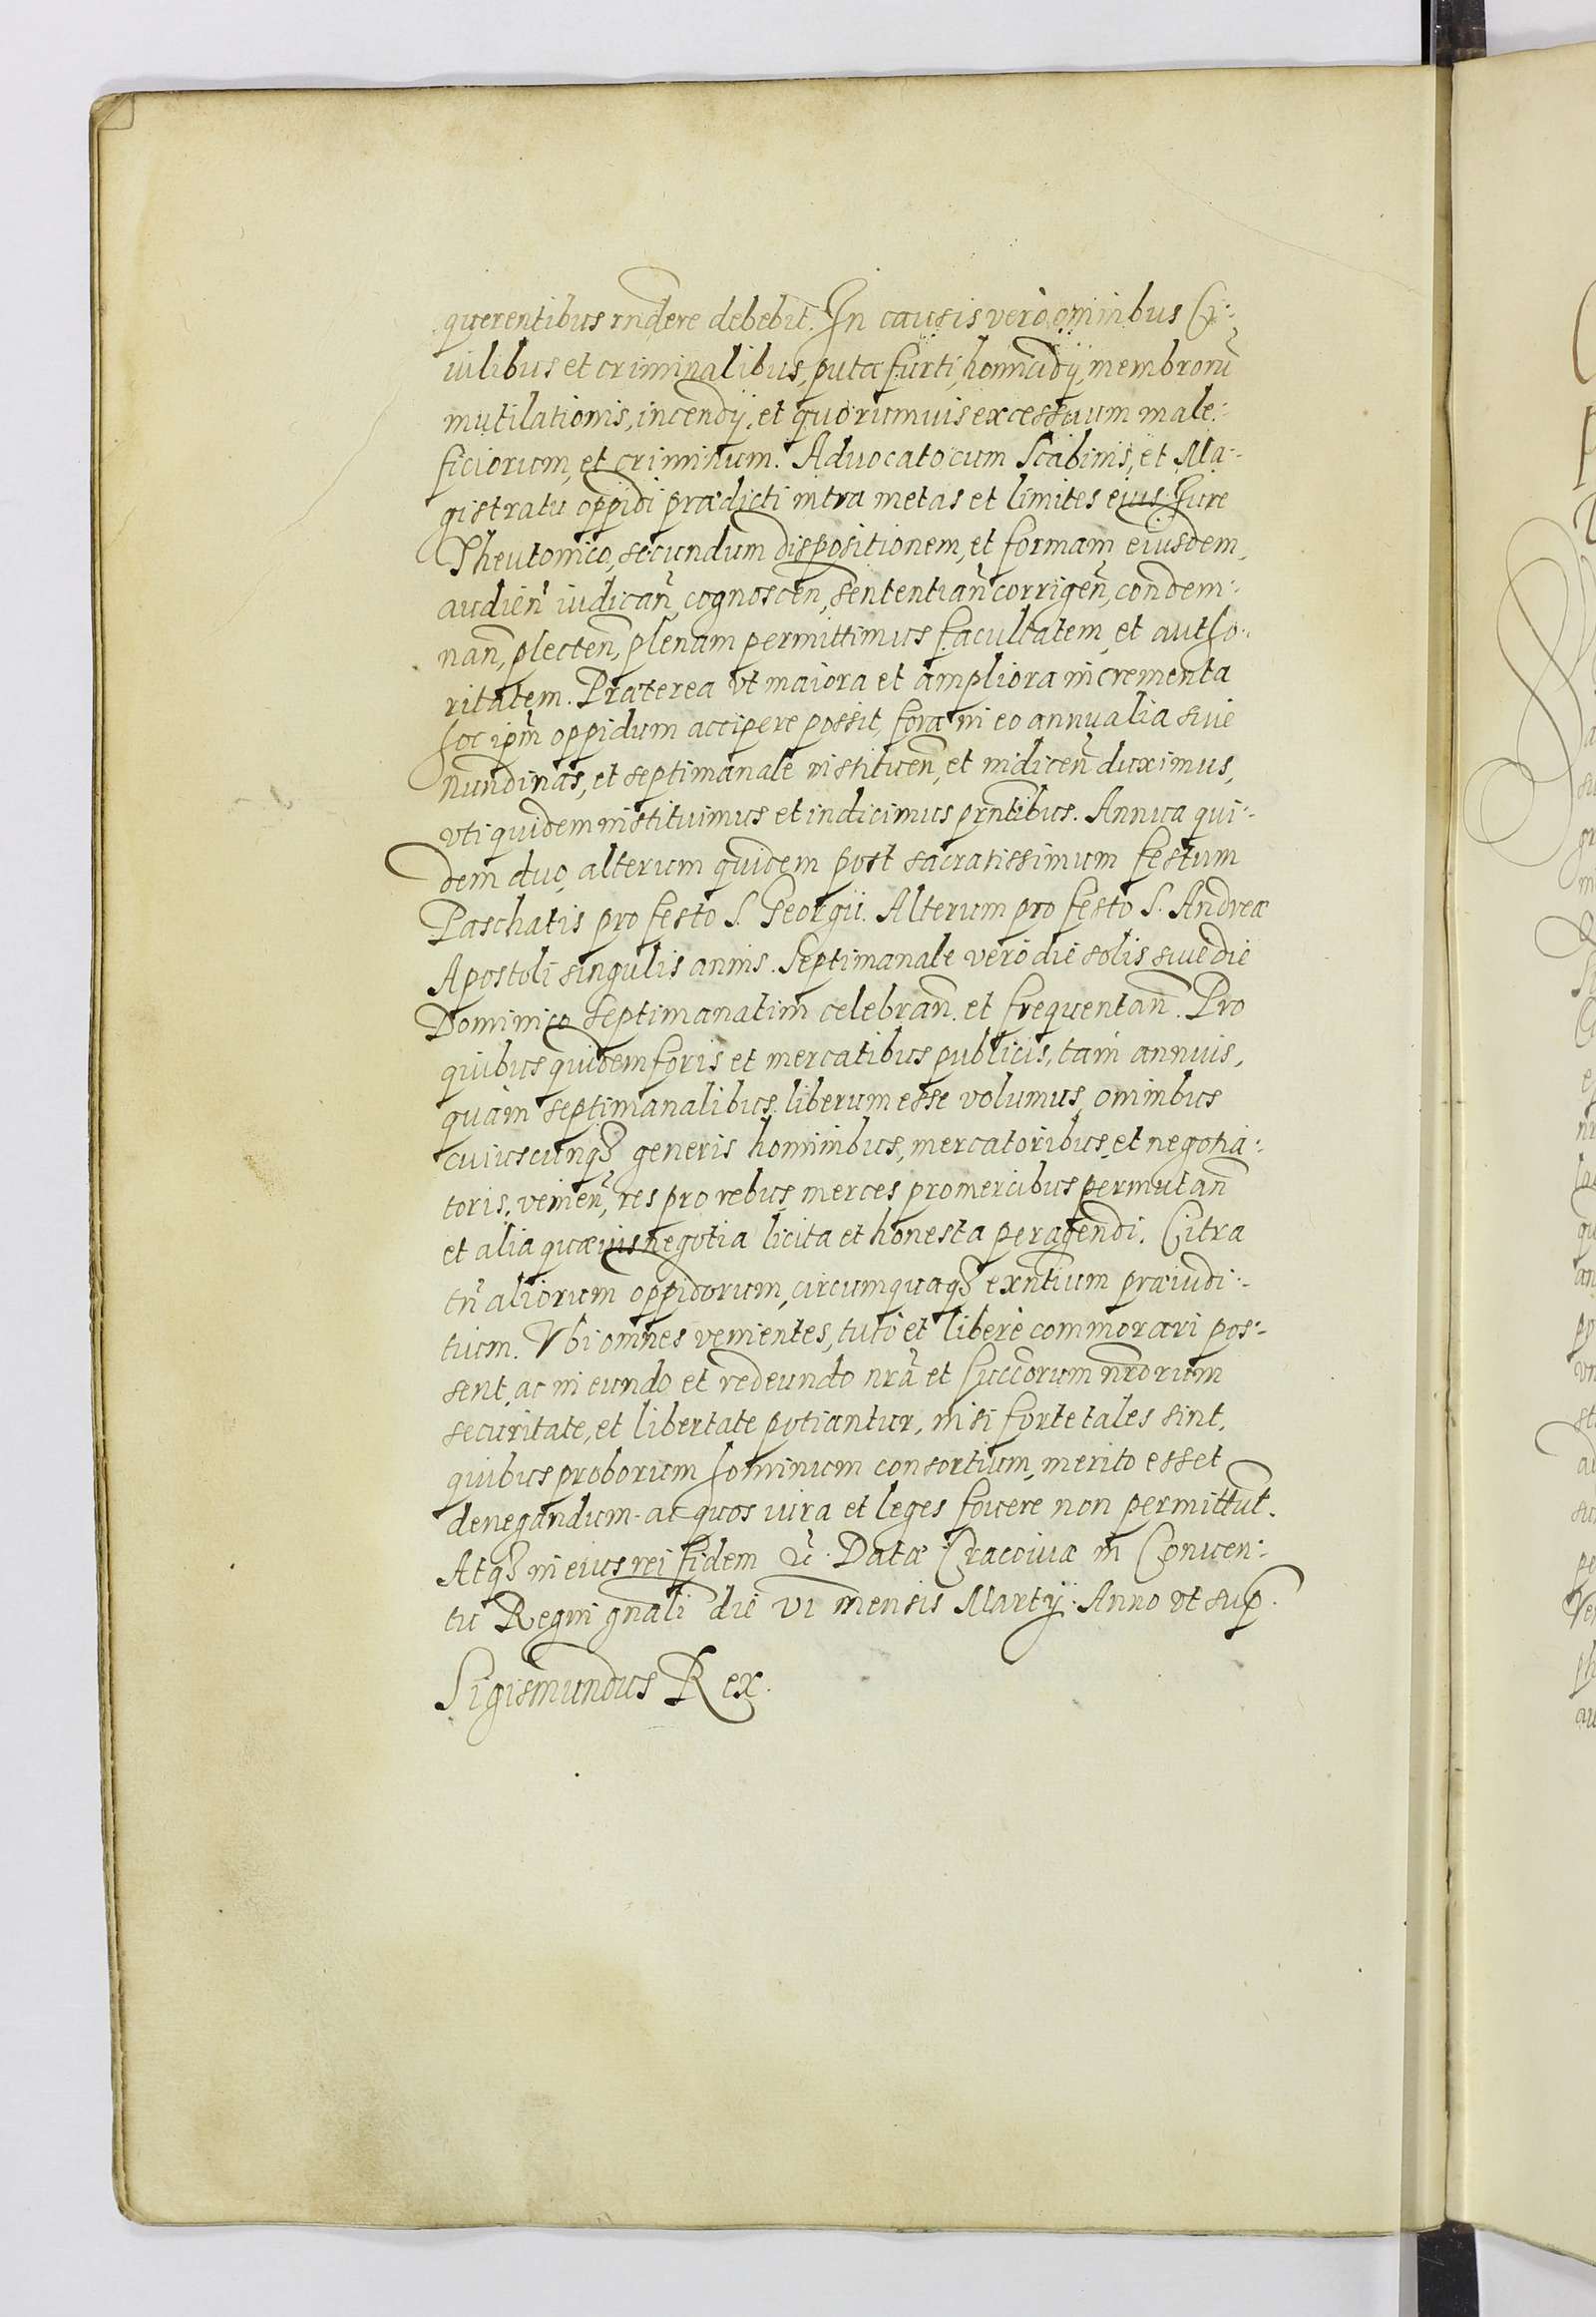 querentibus rndere debebit. In causis verò omnibus Ci-
uilibus et criminalibus, puta furti, homicidÿ, membrorũ
mutilationis, incendÿ, et quorumuis excessuum male-
ficiorum, et criminum. Aduocato cum Scabinis, et Ma-
gistratu oppidi prædicti intra metas et limites eius Jure
Theutonico, secundum dispositionem, et formam eiusdem,
audien̄ iudican̄, cognoscen̄, sententian̄ corrigen̄, condem-
nan̄, plecten̄, plenam permittimus facultatem, et autho-
ritatem. Præterea vt maiora et ampliora incrementa
hoc ipm̄ oppidum accipere possit, fora in eo annualia siue
nundinas, et septimanale instituen̄, et indicen̄ duximus,
vti quidem instituimus et indicimus prn̄tibus. Annua qui-
dem duo, alterum quidem post sacratissimum festum
Paschatis pro festo S. Georgii. Alterum pro festo S. Andreæ
Apostoli singulis annis. Septimanale verò die solis siue die
Dominico septimanatim celebran̄. et frequentan̄. Pro
quibus quidem foris et mercatibus publicis, tam annuis,
quàm septimanalibus liberum esse volumus, omnibus
cuiuscunqȝ generis hominibus, mercatoribus, et negotia-
toris, venien̄, res pro rebus, merces pro mercibus permutan̄
et alia quæuis negotia licita et honesta peragendi. Citra
tn̄ aliorum oppidorum, circumquaqȝ exn̄tium præiudi-
tium. Vbi omnes venientes, tutò et liberè commorari pos-
sent, ac in eundo et redeundo nrā et succōrum nrōrum
securitate, et libertate potiantur, nisi forte tales sint,
quibus proborum hominum consortium, merito esset
denegandum. ac quos iura et leges fouere non permittūt.
Atqȝ in eius rei fidem &c̄. Datæ Cracouiæ in Conuen-
tu Regni gn̄ali die VI mensis Martÿ. Anno vt sup̄.
Sigismundus Rex.